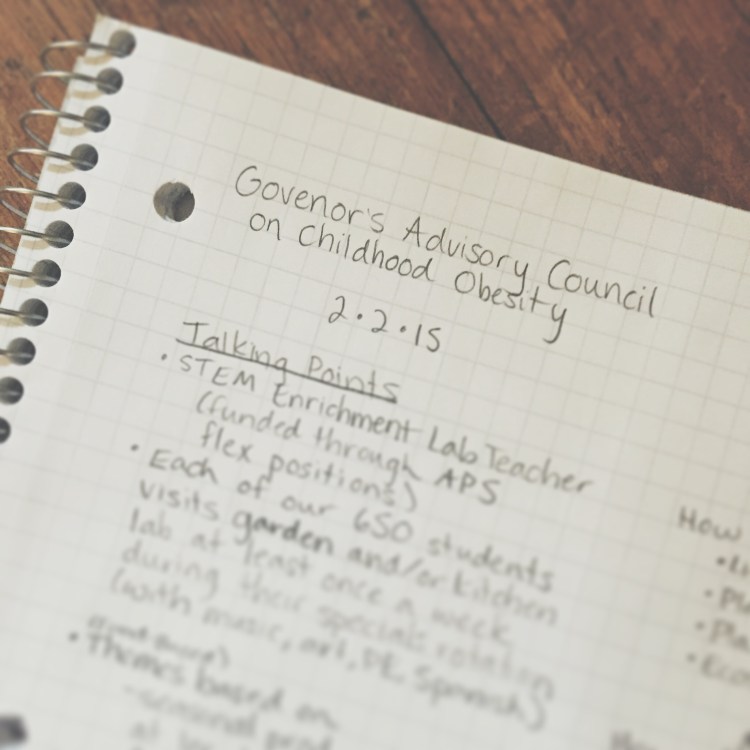 Govenor's Advisory Council
on Childhood Obesity
2.2.15
Talking Points
• STEM Enrichment Lab Teacher
(funded through APS
flex positions)
• Each of our 650 students
visits garden and/or kitchen
lab at least once a week
during their specials rotation
(with music, art, PE, Spanish)
• Themes based on
-seasonal
How